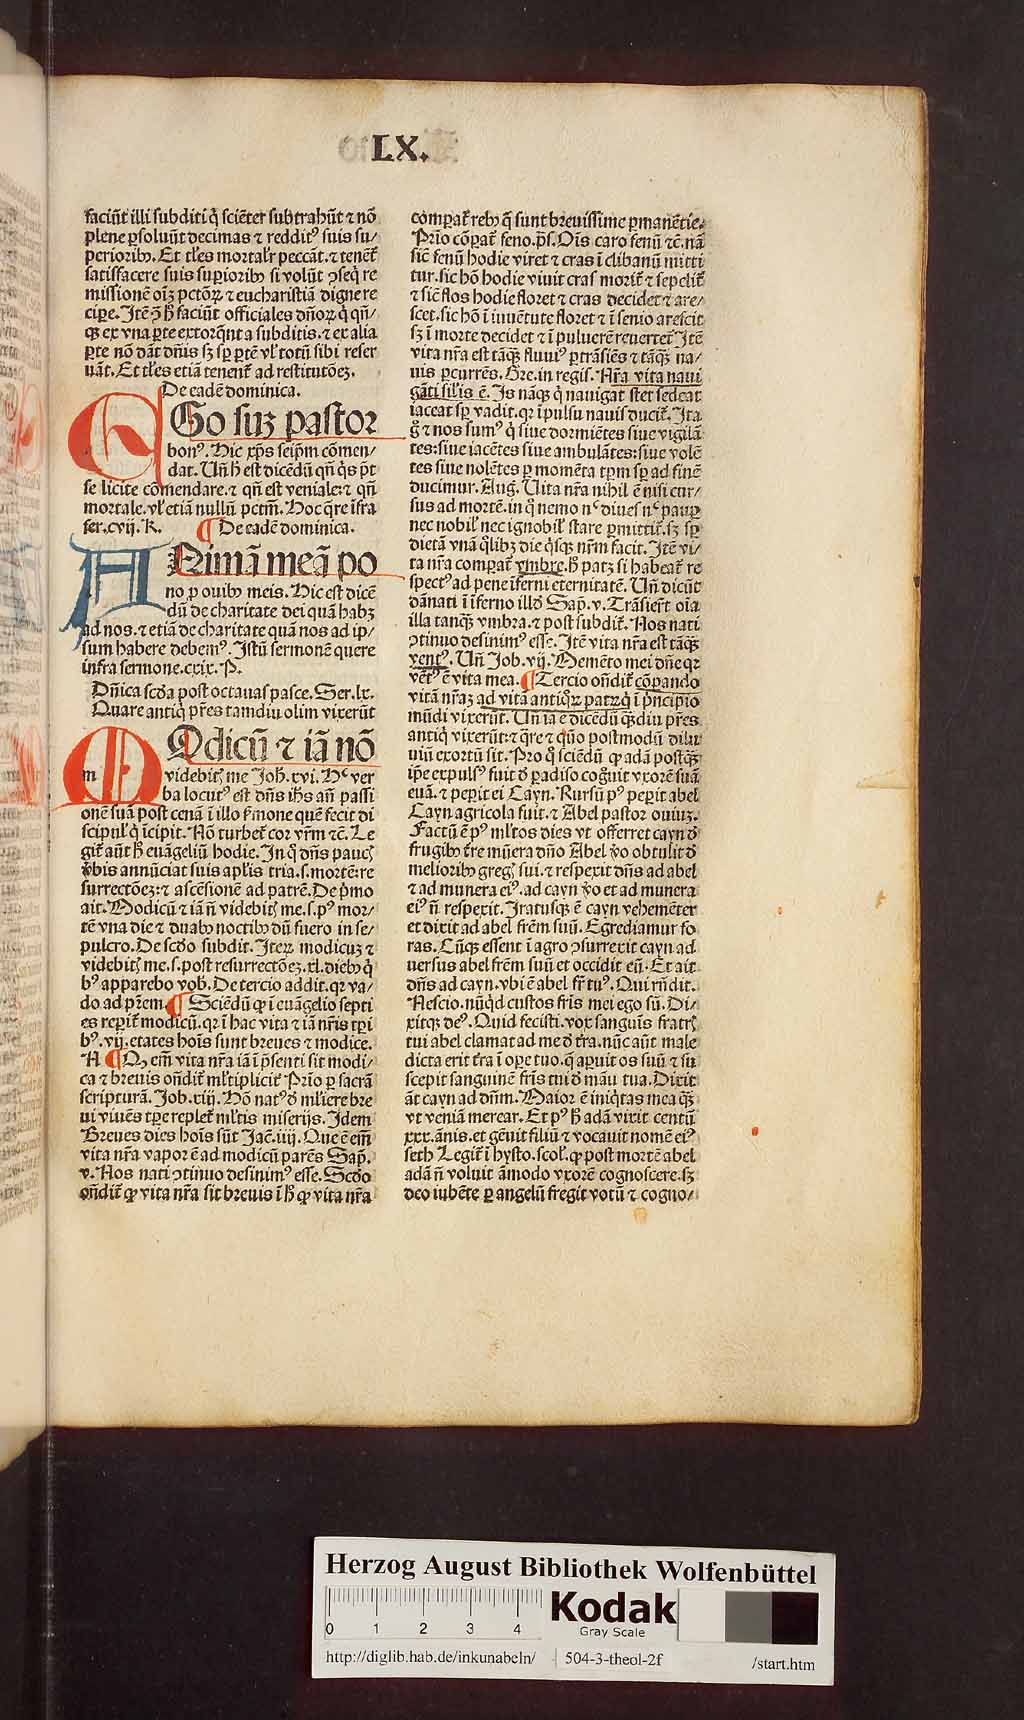 LX.
faciūt illi subditi q̇ sciēter subtrahūt ⁊ nō
plene ꝑsoluūt decimas ⁊ redditꝰ suis su/
perioribꝫ. Et tl̓es mortal̓r peccāt.⁊ tenet̃
satisfacere suis suꝑioribꝫ si volūt ꝯseq̇ re
missionē oīꝫ pctōꝝ ⁊ eucharistiā digne re
ciꝑe. Itē ꝯ h̓ faciūt officiales dn̄oꝝ q̇ qn̄/
qꝫ ex vna ꝑte extorq̄nt a subditis.⁊ ex alia
ꝑte nō dāt dn̄is sꝫ sꝑ ꝑtē vl̓ totū sibi reser
uāt. Et tl̓es etiā tenent̃ ad restitutōeꝫ.
De eadē dominica.
EGo suꝫ pastor
bonꝰ. Hic xp̄s seip̄m cōmen/
dat. Un̄ h̓ est dicēdū qn̄ q̇s p̄t
se licite cōmendare.⁊ qn̄ est veniale:⁊ qn̄
mortale.vl̓ etiā nullū pctm̄. Hoc q̄re īfra
ser.cvij.K. ¶ De eadē dominica.
ANimā meā po
no ꝓ ouibꝫ meis. Hic est dicē
dū de charitate dei quā habꝫ
ad nos.⁊ etiā de charitate quā nos ad ip/
sum habere debemꝰ. Istū sermonē quere
infra sermone.cxix. P.
Dn̄ica scďa post octauas pasce. Ser.lx.
Quare antiq̇ pr̄es tamdiu olim vixerūt
m MOdicū ⁊ iā nō
videbitꝭ me Joh̓. xvi. Hᶜ ver
ba locutꝰ est dn̄s ih̄s an̄ passi
onē suā post cenā ī illo ẜmone quē fecit di
scipul̓ q̇ īcipit. Nō turbet̃ cor vr̄m ⁊c̄. Le
git̃ aūt h̓ euāgeliū hodie. In q̊ dn̄s paucꝭ
v̓bis annūciat suis apl̓is tria.s.mortē:re
surrectōeꝫ:⁊ ascēsionē ad patrē. De p̓mo
ait. Modicū ⁊ iā n̄ videbitꝭ me.s.pꝰ mor/
tē vna die ⁊ duabꝫ noctibꝫ dū fuero in se/
pulcro. De scďo subdit. Iteꝝ modicuꝫ ⁊
videbitꝭ me.s.post resurrectōeꝫ.xl.diebꝫ q̇
bꝰ apparebo vob̓. De tercio addit.qꝛ va/
do ad pr̄em. ¶ Sciēdū ꝙ ī euāgelio septi
es reꝑit̃ modicū.qꝛ ī hac vita ⁊ iā nr̄is tꝑi
bꝰ.vij.etates hoīs sunt breues ⁊ modice.
A ¶ Qꝫ em̄ vita nr̄a iā ī p̄senti sit modi/
ca ⁊ breuis on̄dit̃ ml̓tiplicit̃ Prīo ꝑ sacrā
scripturā. Job.xiij. Hō natꝰ ď ml̓iere bre
ui viuēs tꝑe replet̃ ml̓tis miserijs. Idem
Breues dies hoīs sūt Jac̄.iiij. Que ē em̄
vita nr̄a vapor ē ad modicū parēs Sap̄.
v. Nos nati ꝯtinuo desinimꝰ esse. Scďo
on̄dit̃ ꝙ vita nr̄a sit breuis ī h̓ ꝙ vita nr̄a
comꝑat̃ rebꝫ q̄ sunt breuissime ꝑmanētie.
Prīo cōꝑat̃ feno.p̄s. Oīs caro fenū ⁊c̄.nā
sic̄ fenū hodie viret ⁊ cras ī clibanū mitti
tur.sic hō hodie viuit cras morit̃ ⁊ sepelit̃
⁊ sic̄ flos hodie floret ⁊ cras decidet ⁊ are/
scet.sic hō ī iuuētute floret ⁊ ī senio arescit
sꝫ ī morte decidet ⁊ ī puluerē reuertet̃ Itē
vita nr̄a est tāqꝫ fluuiꝰ ꝑtrāsiēs ⁊ tāqꝫ na/
uis ꝑcurrēs. Gre.in regis̃. Nr̄a vita naui
gāti sil̓is ē. Is nāqꝫ q̇ nauigat stet sedeat
iaceat sꝑ vadit.qꝛ īpulsu nauis ducit̃. Ita
g̊ ⁊ nos sumꝰ q̇ siue dormiētes siue vigilā
tes:siue iacētes siue ambulātes:siue volē
tes siue nolētes ꝑ momēta tꝑm sꝑ ad finē
ducimur. Aug̓. Uita nr̄a nihil ē nisi cur/
sus ad mortē.in q̊ nemo nᶜ diues nᶜ pauꝑ
nec nobil̓ nec ignobil̓ stare ꝑmittit̃.sꝫ sꝑ
dietā vnā q̊libꝫ die q̇sqꝫ nr̄m facit. Itē vi/
ta nr̄a comꝑat̃ vmbre.h̓ patꝫ si habeat̃ re
spectꝰ ad pene īferni eternitatē. Un̄ dicūt
dānati ī īferno illď Sap̄.v. Trāsier̄t oīa
illa tanqꝫ vmbra.⁊ post subdit̃. Nos nati
ꝯtinuo desinimꝰ esse. Itē vita nr̄a est tāqꝫ
ventꝰ. Un̄ Job.vij. Memēto mei dn̄e qꝛ
vētꝰ ē vita mea. ¶ Tercio on̄dit̃ cōꝑando
vitā nr̄aꝫ ad vitā antiq̊ꝝ patꝝ q̇ ī p̓ncipio
mūdi vixerūt. Un̄ iā ē dicēdū qꝫdiu pr̄es
antiq̇ vixerūt:⁊ q̄re ⁊ q̊mō postmodū dilu
uiū exortū sit. Pro q̊ sciēdū ꝙ adā postqꝫ
ip̄e expulsꝰ fuit ď ꝑadiso cog̊uit vxorē suā
euā.⁊ peꝑit ei Cayn. Rursū pꝰ peꝑit abel
Cayn agricola fuit.⁊ Abel pastor ouiuꝫ.
Factū ē pꝰ ml̓tos dies vt offerret cayn ď
frugibꝫ t̓re mūera dn̄o Abel v̊o obtulit ď
melioribꝫ gregꝭ sui.⁊ respexit dn̄s ad abel
⁊ ad munera eiꝰ.ad cayn v̊o et ad munera
eiꝰ n̄ respexit. Iratusqꝫ ē cayn vehemēter
et dixit ad abel fr̄em suū. Egrediamur fo
ras. Cūqꝫ essent ī agro ꝯsurrexit cayn ad
uersus abel fr̄em suū et occidit eū. Et ait
dn̄s ad cayn.vbi ē abel fr̄ tuꝰ. Qui rn̄dit.
Nescio.nūq̇d custos fr̄is mei ego sū. Di/
xitqꝫ deꝰ. Quid fecisti.vox sanguīs fratrꝭ
tui abel clamat ad me ď t̓ra.nūc aūt male
dicta erit t̓ra ī oꝑe tuo.q̄ aꝑuit os suū ⁊ su
scepit sanguinē fr̄is tui ď māu tua. Dixit
āt cayn ad dn̄m. Maior ē iniq̇tas mea qꝫ
vt veniā merear. Et pꝰ h̓ adā vixit centū
xxx.ānis.et gēuit filiū ⁊ vocauit nomē eiꝰ
seth Legit̃ ī hysto.scol̓.ꝙ post mortē abel
adā n̄ voluit āmodo vxorē cognoscere.sꝫ
deo iubēte ꝑ angelū fregit votū ⁊ cogno/
Herzog August Bibliothek Wolfenbüttel
0 1 2 3 4
Kodak
Gray Scale
http://diglib.hab.de/inkunabeln/ 504-3-theol-2f /start.htm